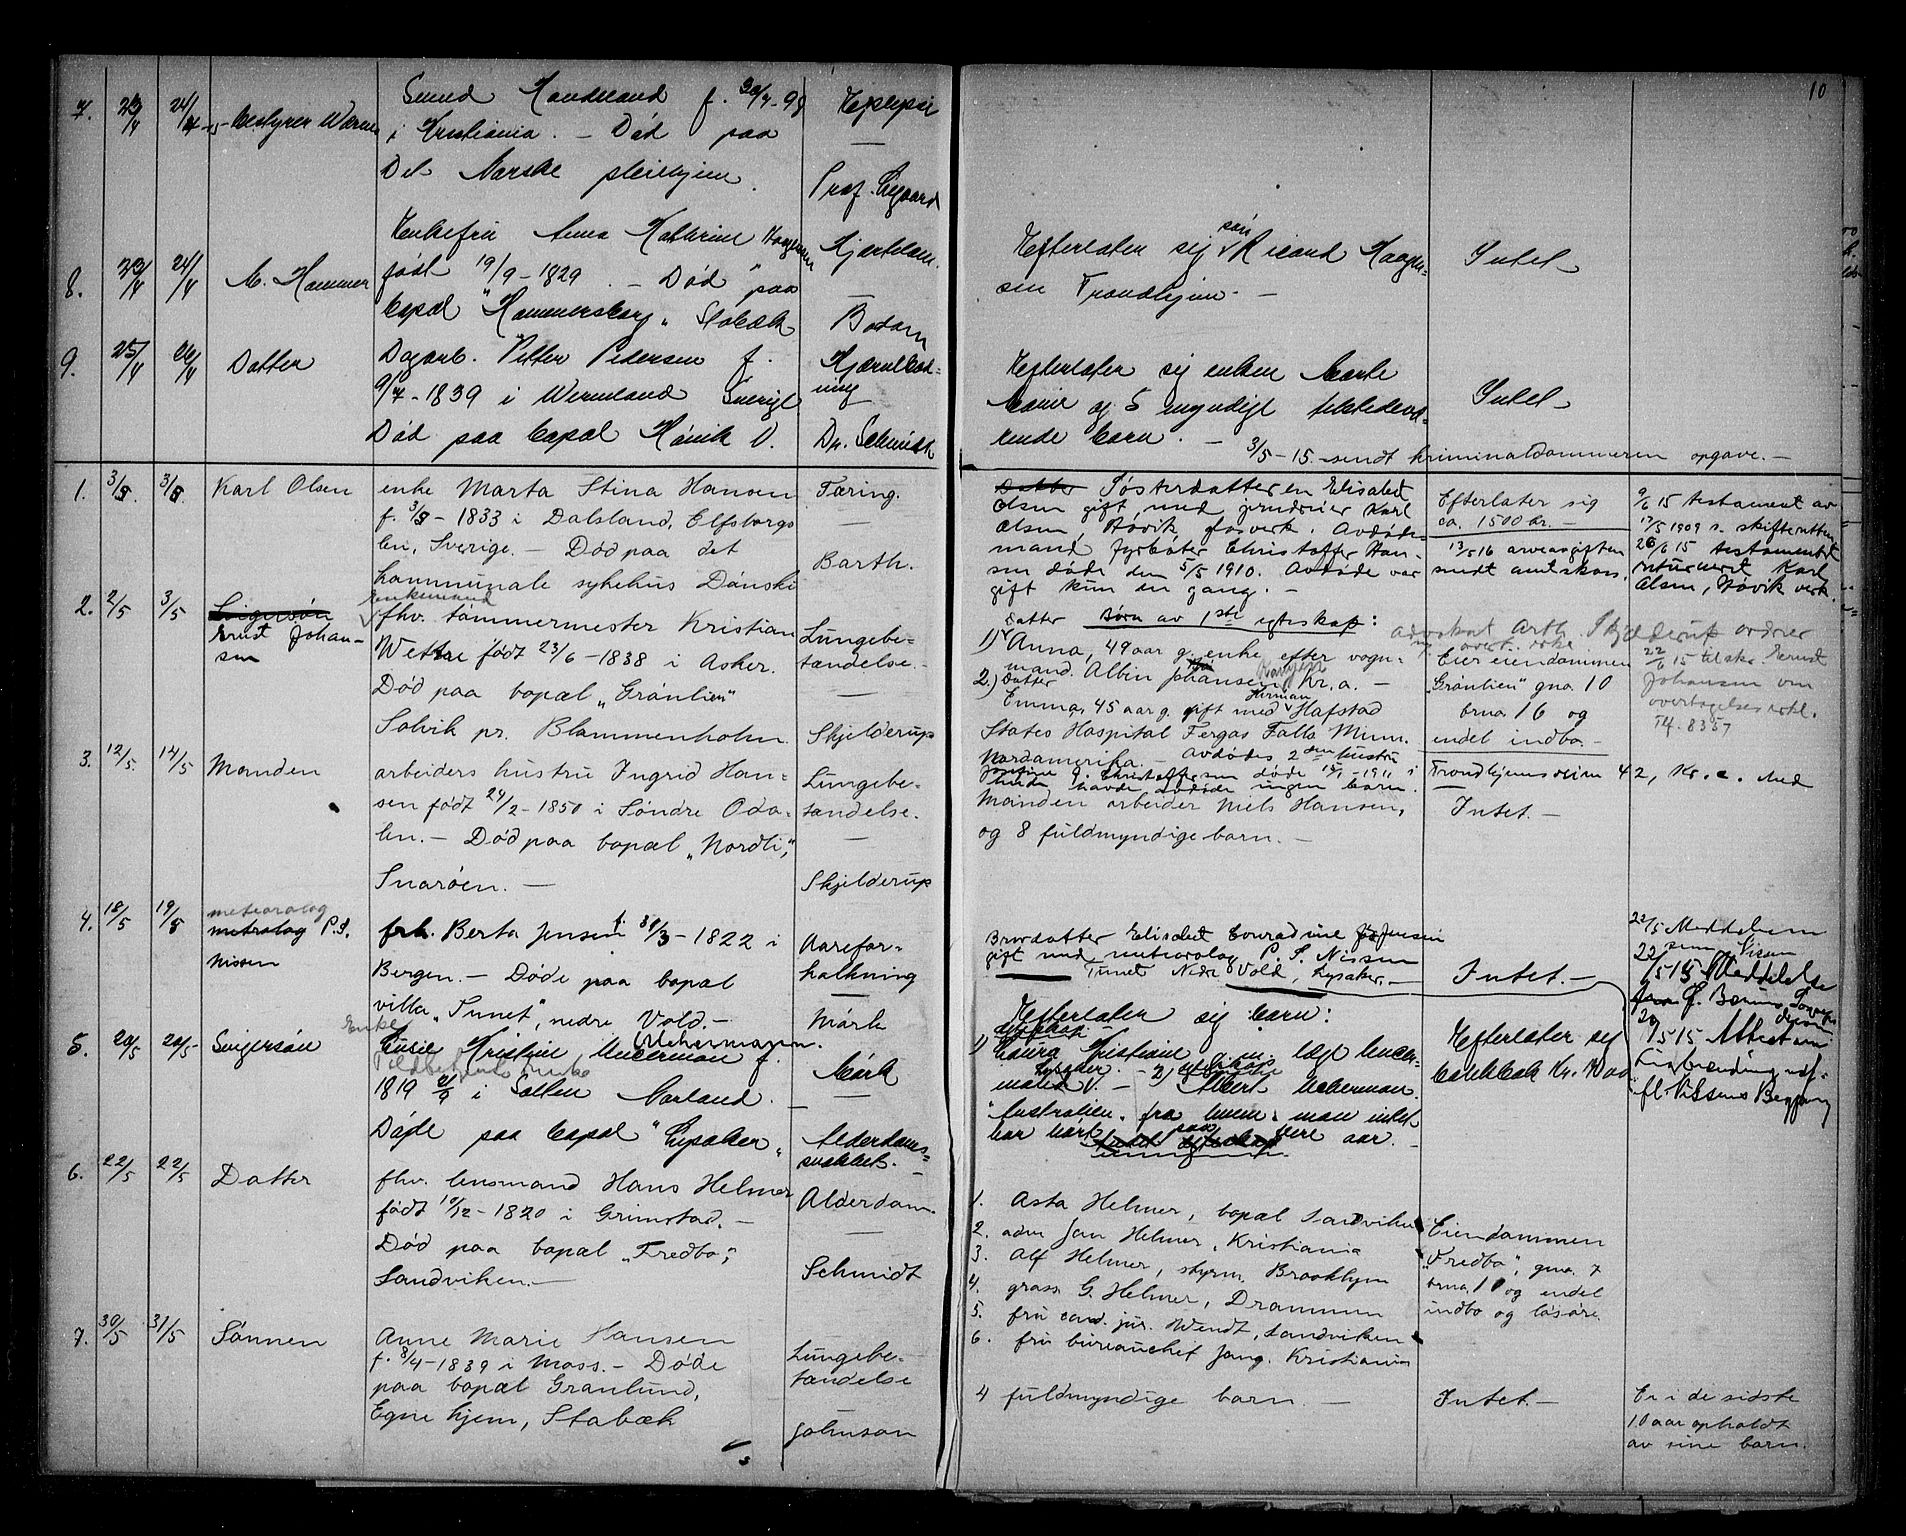 10
7. 23/4 24/4 -15- bestyrer Warner
f. 30/4-98
i Kristiania. - Död paa
Det Norske pleiehjem.
Epilepsi
Prof.
8. 23/4 24/4 M. Hammer
Enkefru Anna Kathrine Haagensen
födt 19/9-1829. - Död paa
bopæl "Hammersborg" Stabæk
Hjertelam.
Efterlater sig sön Ricard Haagen-
sen Trondhjem. -
Intet
9. 25/4 26/4 Datter
Dagarb. Petter Pedersen f.
9/7-1839 i Wermland Sverige
Död paa bopæl Hövik V.
Hjerneblöd-
ning
Dr. Schmidt
Efterlater sig enken Marte
Marie og 5 myndige tilstedevæ-
rende barn. -
Intet
3/5-15. sendt kriminaldommeren opgave. -
1. 3/5. 3/5. Karl Olsen
enke Marta Stina Hansen
f. 3/8-1833 i Dalsland, Elfsborgs
len, Sverige. - Död paa det
kommunale sykehus Dönski
Tæring.
Barth.
Datter Sösterdatteren Elisabet
Olsen gift med grundeier Karl
Olsen, Hövik glasverk. Avdödes
mand fyrböter Christoffer Han-
sen döde den 5/5 1910. Avdöde var
gift kun en gang. -
Efterlater sig
ca. 1500 kr. -
13/5 16 arveavgiften
sendt amtskass.
9/6 15 testament av
17/5 1909 s. skifteretten
26/6 15 testamentet
returneret Karl
Olsen, Hövik verk.
2. 2/5 3/5 Svigersön
Ernst Johan-
sen
Enkemand
fhv. tömmermester Kristian
Wettre födt 23/6-1838 i Asker.
Död paa bopæl "Grönlien"
Solvik pr. Blommenholm.
Lungebe-
tændelse. -
Skjelderup
Datter Börn av 1ste egteskap:
1) Anna, 49 aar g. enke efter vogn-
mand. Albin Johansen, Kr.a. -
2.) Datter
Emma, 45 aar g. gift med Herman Hafstad
States Hospital Fergus Falls Minn.
Nordamerika. - avdödes 2den hustru
g. Christoffersen döde 1911 i
havde avdöde ingen barn.
Advokat Arth. Skjelderup ordner
Eier eiendommen
"Grönlien" gno. 10
brno. 16 og
endel indbo. -
Trondhjemsveien 42, Kr.a. Med
22/6 15 tilskr. Ernst
Johansen om
overtagelseserkl.
T4. 8357
3. 12/5. 14/5 Manden
arbeiders hustru Ingrid Han-
sen födt 24/2-1850 i Söndre Oda-
len. - Död paa bopæl "Nordli",
Snaröen. -
Lungebe-
tændelse.
Skjelderup
Manden arbeider Niels Hansen,
og 8 fuldmyndige barn. -
Intet. -
4. 18/5 19/5 meteorolog
metrolog P.S.
Nissen
frk. Berta Jensen f. 31/3-1822 i
Bergen. - Döde paa bopæl
villa "Tunet", nedre Vold. -
Aarefor-
kalkning
Mörk
Brordatter Elisabet Conradine Jensen
gift med meteorolog P. S. Nissen
Tunet Nedre Vold, Lysaker. -
Intet. -
22/5 Meddelelse
22/5 15 Meddelelse
5. 20/5 20/5- Svigersön
Enke
Kristine Uckermann f.
1819 i Salten Norland.
Döde paa bopæl "Lysaker"
Mörk
Alderdoms-
svakhet. -
Efterlater sig barn:
1) Laura Kristiane g. m. læge Ucker-
mann V. - 2) Albert Uckerman.
Australien. fra hvem man intet
har hört paa flere aar. -
Efterlater sig
bankbok Kr. 1000
6. 22/5 22/5 Datter
fhv. lensmand Hans Helmer
födt 10/12-1820 i Grimstad. -
Död paa bopæl "Fredbo",
Sandviken. -
Alderdom.
Schmidt
1. Asta Helmer, bopæl Sandviken
2. adm Jan Helmer, Kristiania
3. Alf Helmer, styrm. Brooklyn
4. gross. G. Helmer, Drammen
5. fru cand. jur. Wendt, Sandviken
6. fru bureauchef Jang. Kristiania
Eiendommen
"Fredbo", gno. 7
brno. 10 og endel
indbo og lösöre.
7. 30/5 31/5 Sönnen
Anne Marie Hansen
f. 8/4-1839 i Moss. - Döde
paa bopæl Granlund,
Egne hjem, Stabæk
Lungebe-
tændelse
Johnson
4 fuldmyndige barn. -
Intet. -
Er i de sidste
10 aar opholdt
av sine barn.